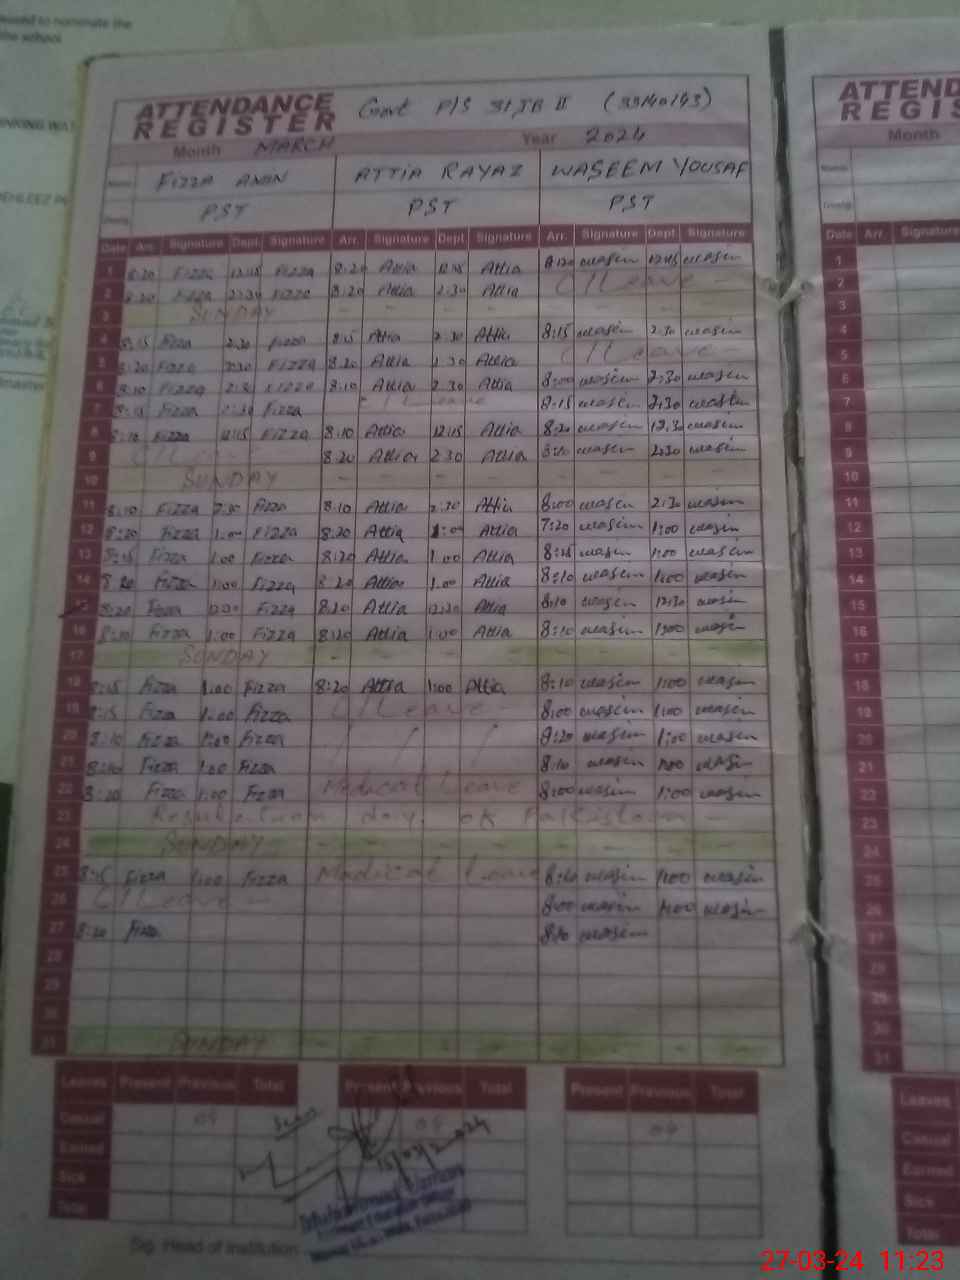 ATTENDANCE REGISTER Govt P/S 31 JB II (33140193)
Month MARCH Year 2024
FIZZA AMIN ATTIA RAYAZ WASEEM YOUSAF
PST PST PST
Date Arr. Signature Dept. Signature Arr. Signature Dept Signature Arr. Signature Dept. Signature
1 8:20 Fizza 12:15 Fizza 8:20 Attia 12:15 Attia 8:20 wasim 12:15 wasim
2 8:20 Fizza 2:30 Fizza 8:20 Attia 2:30 Attia C/Leave
3 SUNDAY
4 8:15 Fizza 2:30 Fizza 8:15 Attia 2:30 Attia 8:15 wasim 2:30 wasim
5 8:20 Fizza 2:30 Fizza 8:20 Attia 2:30 Attia C/Leave
6 8:10 Fizza 2:30 Fizza 8:10 Attia 2:30 Attia 8:00 wasim 2:30 wasim
7 8:15 Fizza 2:30 Fizza C/Leave 8:15 wasim 2:30 wasim
8 8:10 Fizza 12:15 Fizza 8:10 Attia 12:15 Attia 8:20 wasim 12:30 wasim
9 C/Leave 8:20 Attia 2:30 Attia 8:20 wasim 2:30 wasim
10 SUNDAY
11 8:10 Fizza 2:30 Fizza 8:10 Attia 2:30 Attia 8:00 wasim 2:30 wasim
12 8:20 Fizza 1:00 Fizza 8:20 Attia 1:00 Attia 7:20 wasim 1:00 wasim
13 8:15 Fizza 1:00 Fizza 8:20 Attia 1:00 Attia 8:15 wasim 1:00 wasim
14 8:20 Fizza 1:00 Fizza 8:20 Attia 1:00 Attia 8:10 wasim 1:00 wasim
15 8:20 Fizza 12:30 Fizza 8:20 Attia 12:30 Attia 8:10 wasim 12:30 wasim
16 8:20 Fizza 1:00 Fizza 8:20 Attia 1:00 Attia 8:10 wasim 1:00 wasim
17 SUNDAY
18 8:15 Fizza 1:00 Fizza 8:20 Attia 1:00 Attia 8:10 wasim 1:00 wasim
19 8:15 Fizza 1:00 Fizza C/Leave 8:00 wasim 1:00 wasim
20 8:10 Fizza 1:00 Fizza / / / 8:20 wasim 1:00 wasim
21 8:10 Fizza 1:00 Fizza 8:10 wasim 1:00 wasim
22 8:20 Fizza 1:00 Fizza Medical Leave 8:00 wasim 1:00 wasim
23 day of Pakistan
24 SUNDAY
25 8:15 Fizza 1:00 Fizza Medical Leave 8:20 wasim 1:00 wasim
26 C/Leave 8:00 wasim 1:00 wasim
27 8:20 Fizza 8:20 wasim
28
29
30
31 SUNDAY
Leaves Present Previous Total Present Previous Total Present Previous Total
Casual 04
Earned
Sick
Total
Seen
15/03/2024
Sig. Head of Institution
ATTENDANCE REGISTER
Month
Date Arr. Signature
1
2
3
4
5
6
7
8
9
10
11
12
13
14
15
16
17
18
19
20
21
22
23
24
25
26
27
28
29
30
31
Leaves
Casual
Earned
Sick
Total
27-03-24 11:23